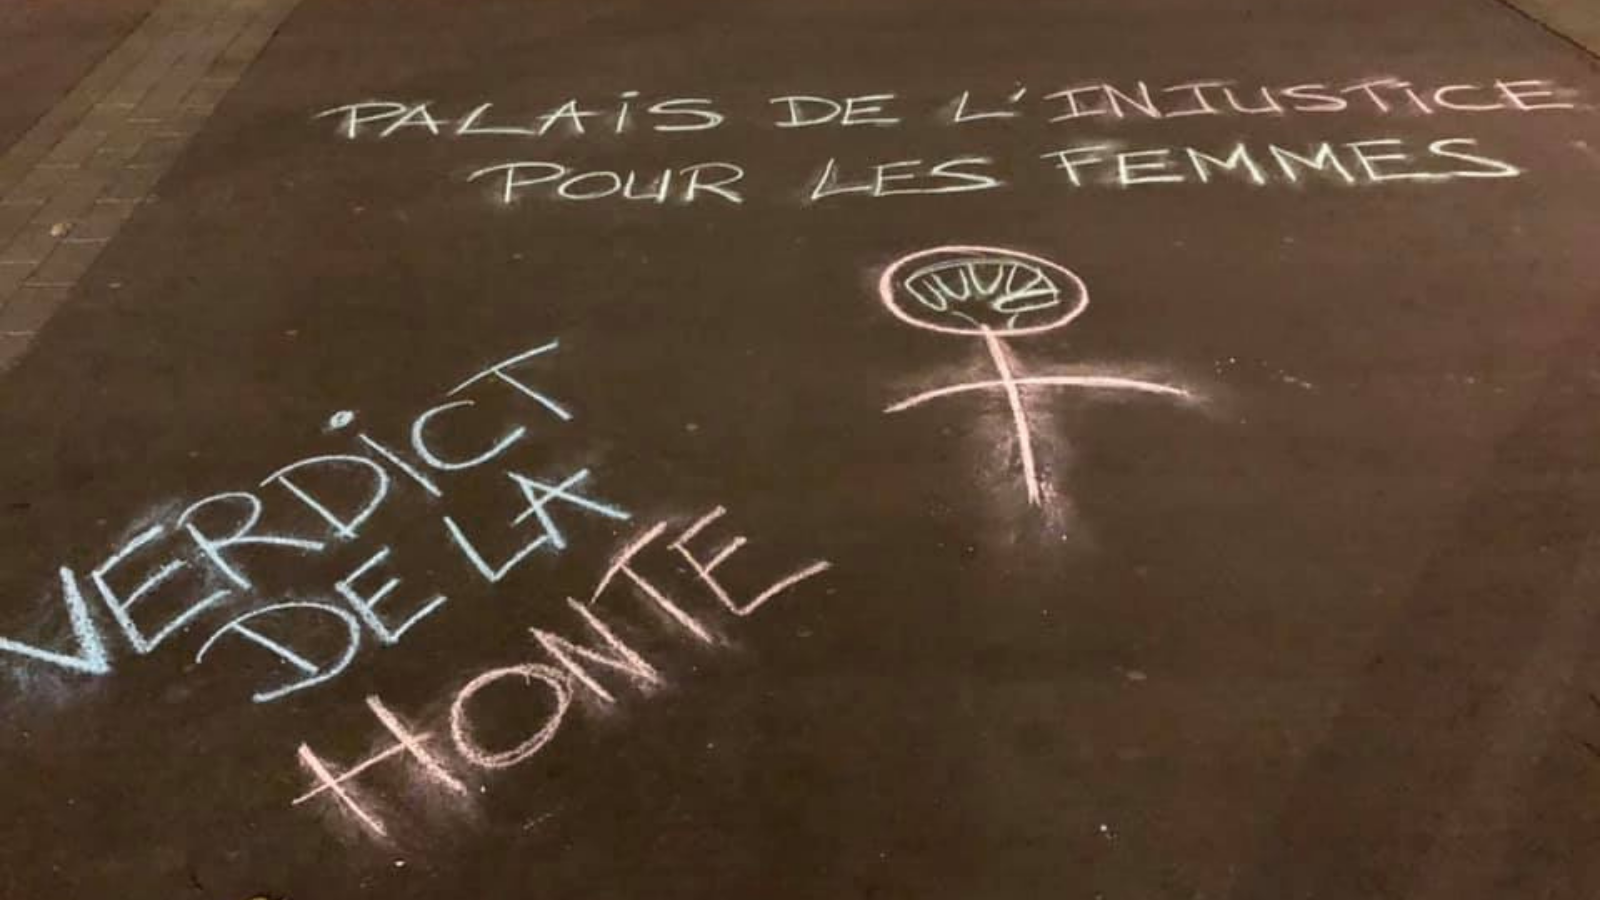 PALAiS DE L'INJUSTiCE
POUR LES FEMMES
VERDiCT
DE LA
HONTE